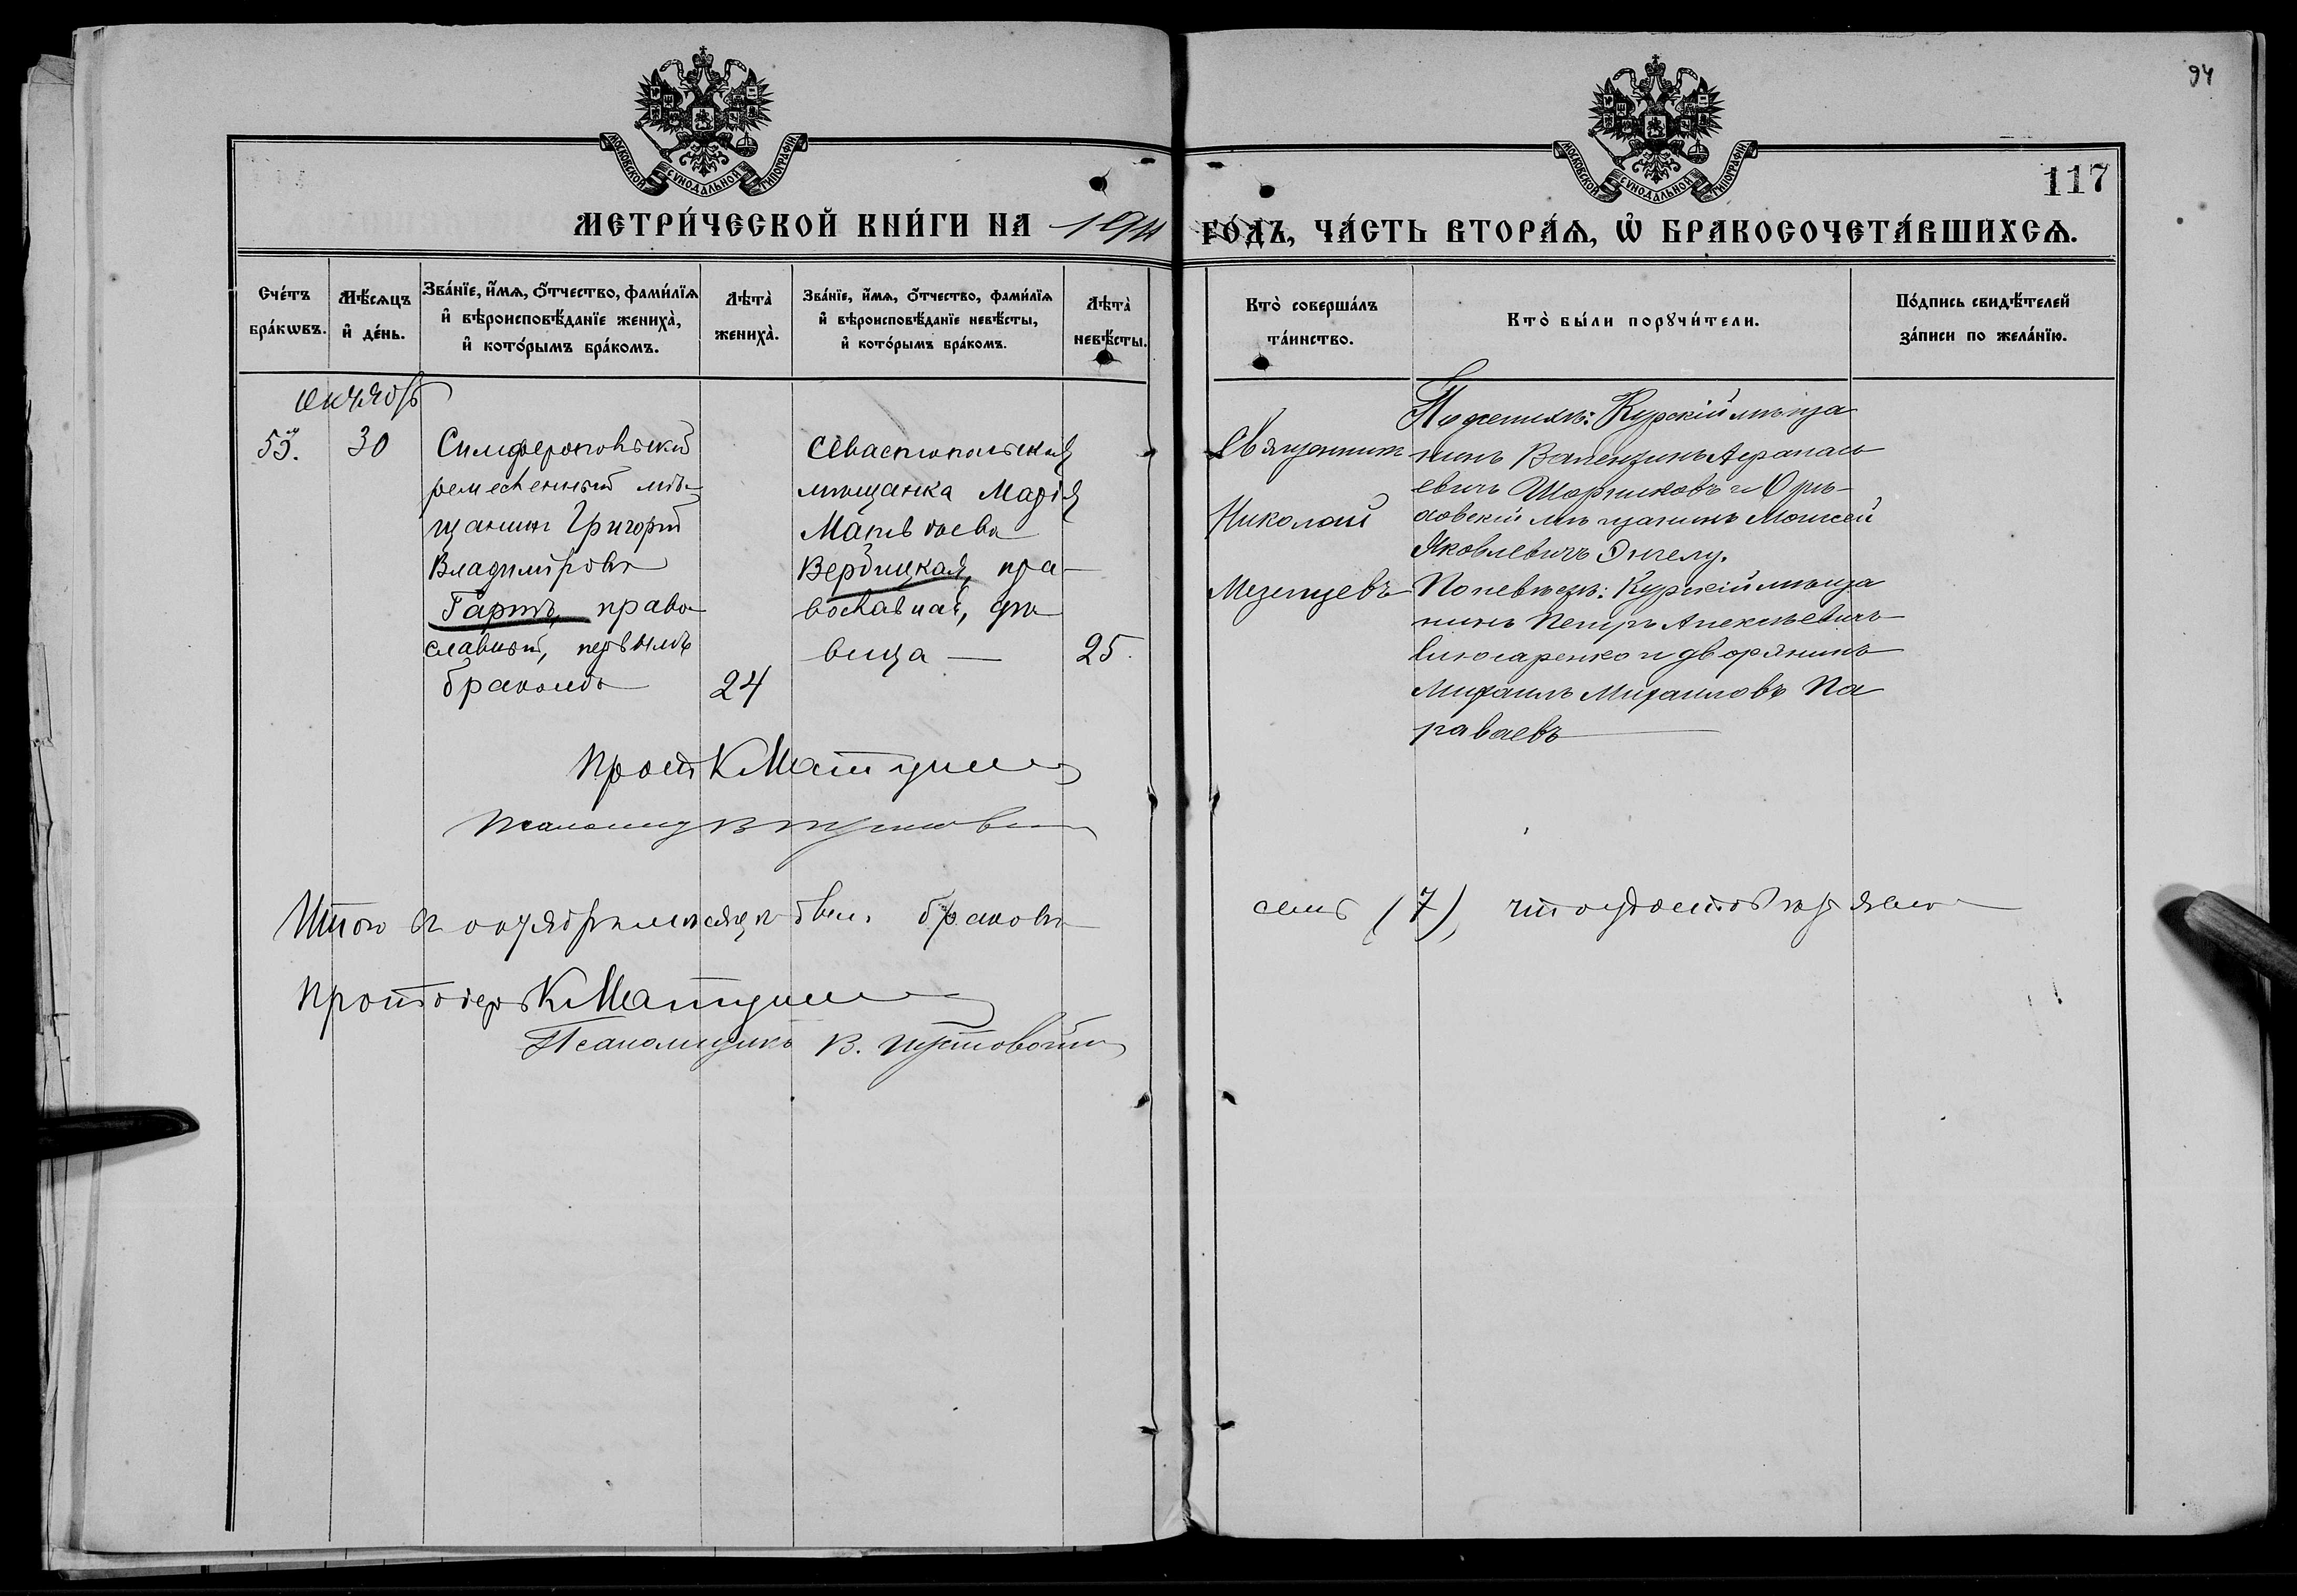 94
117
МОСКОВСКОЙ СѴНОДАЛЬНОЙ ТИПОГРАФІИ
МОСКОВСКОЙ СѴНОДАЛЬНОЙ ТИПОГРАФІИ
МЕТРИ́ЧЕСКОЙ КНИ́ГИ НА
ГО́ДЪ, ЧА́СТЬ ВТОРА́Ѧ, Ѡ҆ БРАКОСОЧЕТА́ВШИХСѦ.
Сче́тъ бра́кωвъ.
Мѣ́сѧцъ и҆ де́нь.
Зва́нїе, и҆́мѧ, ѻ҆́тчество, фами́лїѧ и҆ вѣроисповѣ́данїе жениха̀, и҆ кото́рымъ бра́комъ.
Лѣта̀ жениха̀.
Зва́нїе, и҆́мѧ, ѻ҆́тчество, фами́лїѧ и҆ вѣроисповѣ́данїе невѣ́сты, и҆ кото́рымъ бра́комъ.
Лѣта̀ невѣ́сты.
Кто̀ соверша́лъ та́инство.
Кто̀ бы́ли порꙋчи́тели.
По́дпись свидѣ́телей за́писи по жела́нїю.
октябрь
53. 30
Симферопольскій
ремесленный мѣ-
щанинъ Григорій
Владиміровъ
Гартъ, право
славный, первымъ
бракомъ
24
Севастопольская
мѣщанка Марія
Матвѣева
Вердицкая, пра-
вославная, дѣ
вица —
25.
Священникъ
Николай
Мезенцевъ
По женихѣ: Курскій мѣща
нинъ Валентинъ Афанась
евичъ Шортиковъ и Орѣ-
ховскій мѣщанинъ Моисей
Яковлевичъ
По невѣстѣ: Курскій мѣща
нинъ Петръ Алексѣевичъ
Слюсаренко и дворянинъ
Михаилъ Михаиловъ Ка
раваевъ
Прот. К Матушев
Псаломщ В Пустовой
Итого въ октябрѣ мѣсяцѣ было браковъ
семь (7), что удостовѣряемъ
Протоіерей К Матушев
Псаломщикъ В. Пустовой